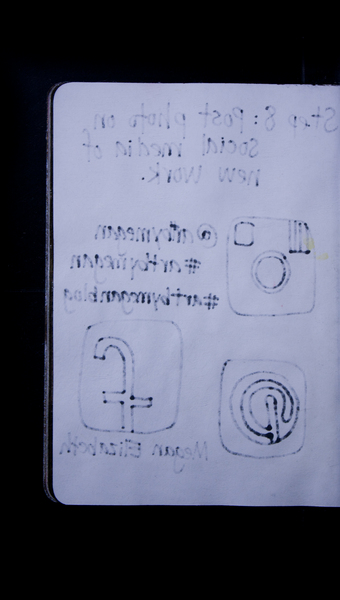 Step 8: Post photo on
social media of
new work.
@artbymegan
#artbymegan
#artbymeganblog
Megan Elizabeth